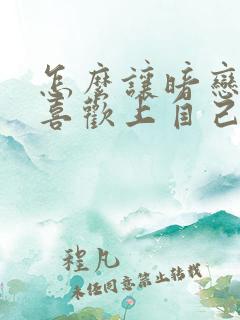 怎麼讓暗戀
喜歡上自己
程凡
未经同意禁止转载